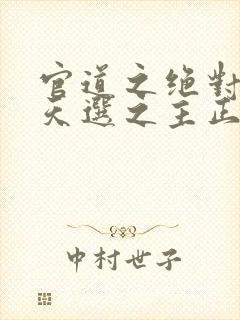 官道之绝對
天選之主正
中村世子